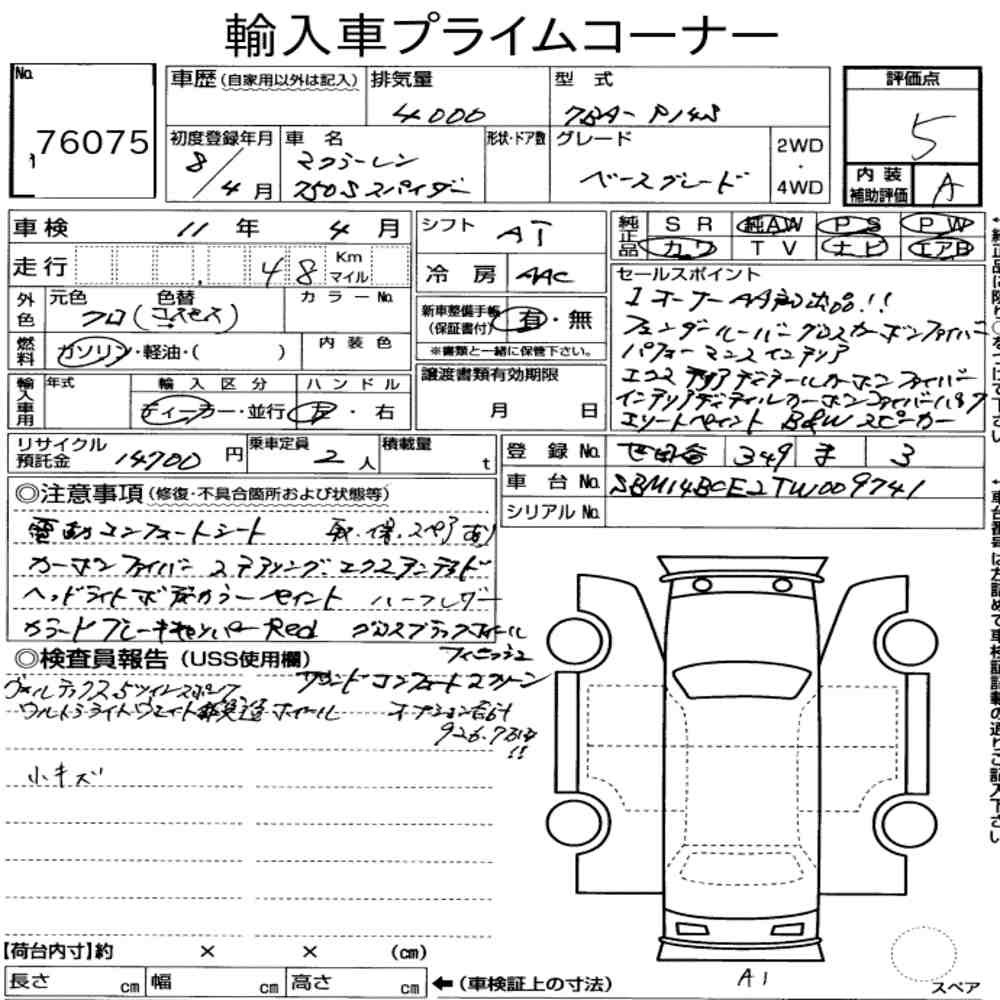 輸入車プライムコーナー
No. 76075
車歴(自家用以外は記入) 排気量 4000 型式 7BA-P14S
評価点 5
内装補助評価 A
初度登録年月 8/4月 車名 マクラーレン 750Sスパイダー 形状・ドア数 グレード ベースグレード 2WD・4WD
車検 11年 4月
走行 48 Km マイル
シフト AT
冷房 AAC
純正品 SR 純AW PS PW
カワ TV ナビ エアB
外色 元色 クロ 色替 (コスモス) カラーNo.
燃料 ガソリン・軽油・( ) 内装色
新車整備手帳(保証書付) 有・無
※書類と一緒に保管下さい。
輸入車用 年式 輸入区分 ディーラー・並行 ハンドル 左・右
譲渡書類有効期限 月 日
セールスポイント
1オーナーAA初出品!!
フェンダールーバーグロスカーボンファイバー
パフォーマンスインテリア
エクステリアディテールカーボンファイバー
インテリアディテイルカーボンファイバーパック
エリートペイント B&Wスピーカー
リサイクル預託金 14700円 乗車定員 2人 積載量 t
登録No. 世田谷 349 ま 3
車台No. SBM14BCE2TW009741
シリアルNo.
◎注意事項(修復・不具合箇所および状態等)
電動コンフォートシート 取・保・スペアあり
カーボンファイバーステアリング、エクステンデッド
ヘッドライトボディカラーペイント ハーフレザー
カラードブレーキキャリパーRed グロスブラックホイール
フィニッシュ
◎検査員報告(USS使用欄)
ヴォルテックス5ツインスポーク サウンドコンフォートスクリーン
ウルトラライトウェイト鍛造ホイール オプション合計
926.7万円!!
小キズ
A1
スペア
【荷台内寸】約 × × (cm)
長さ cm 幅 cm 高さ cm ←(車検証上の寸法)